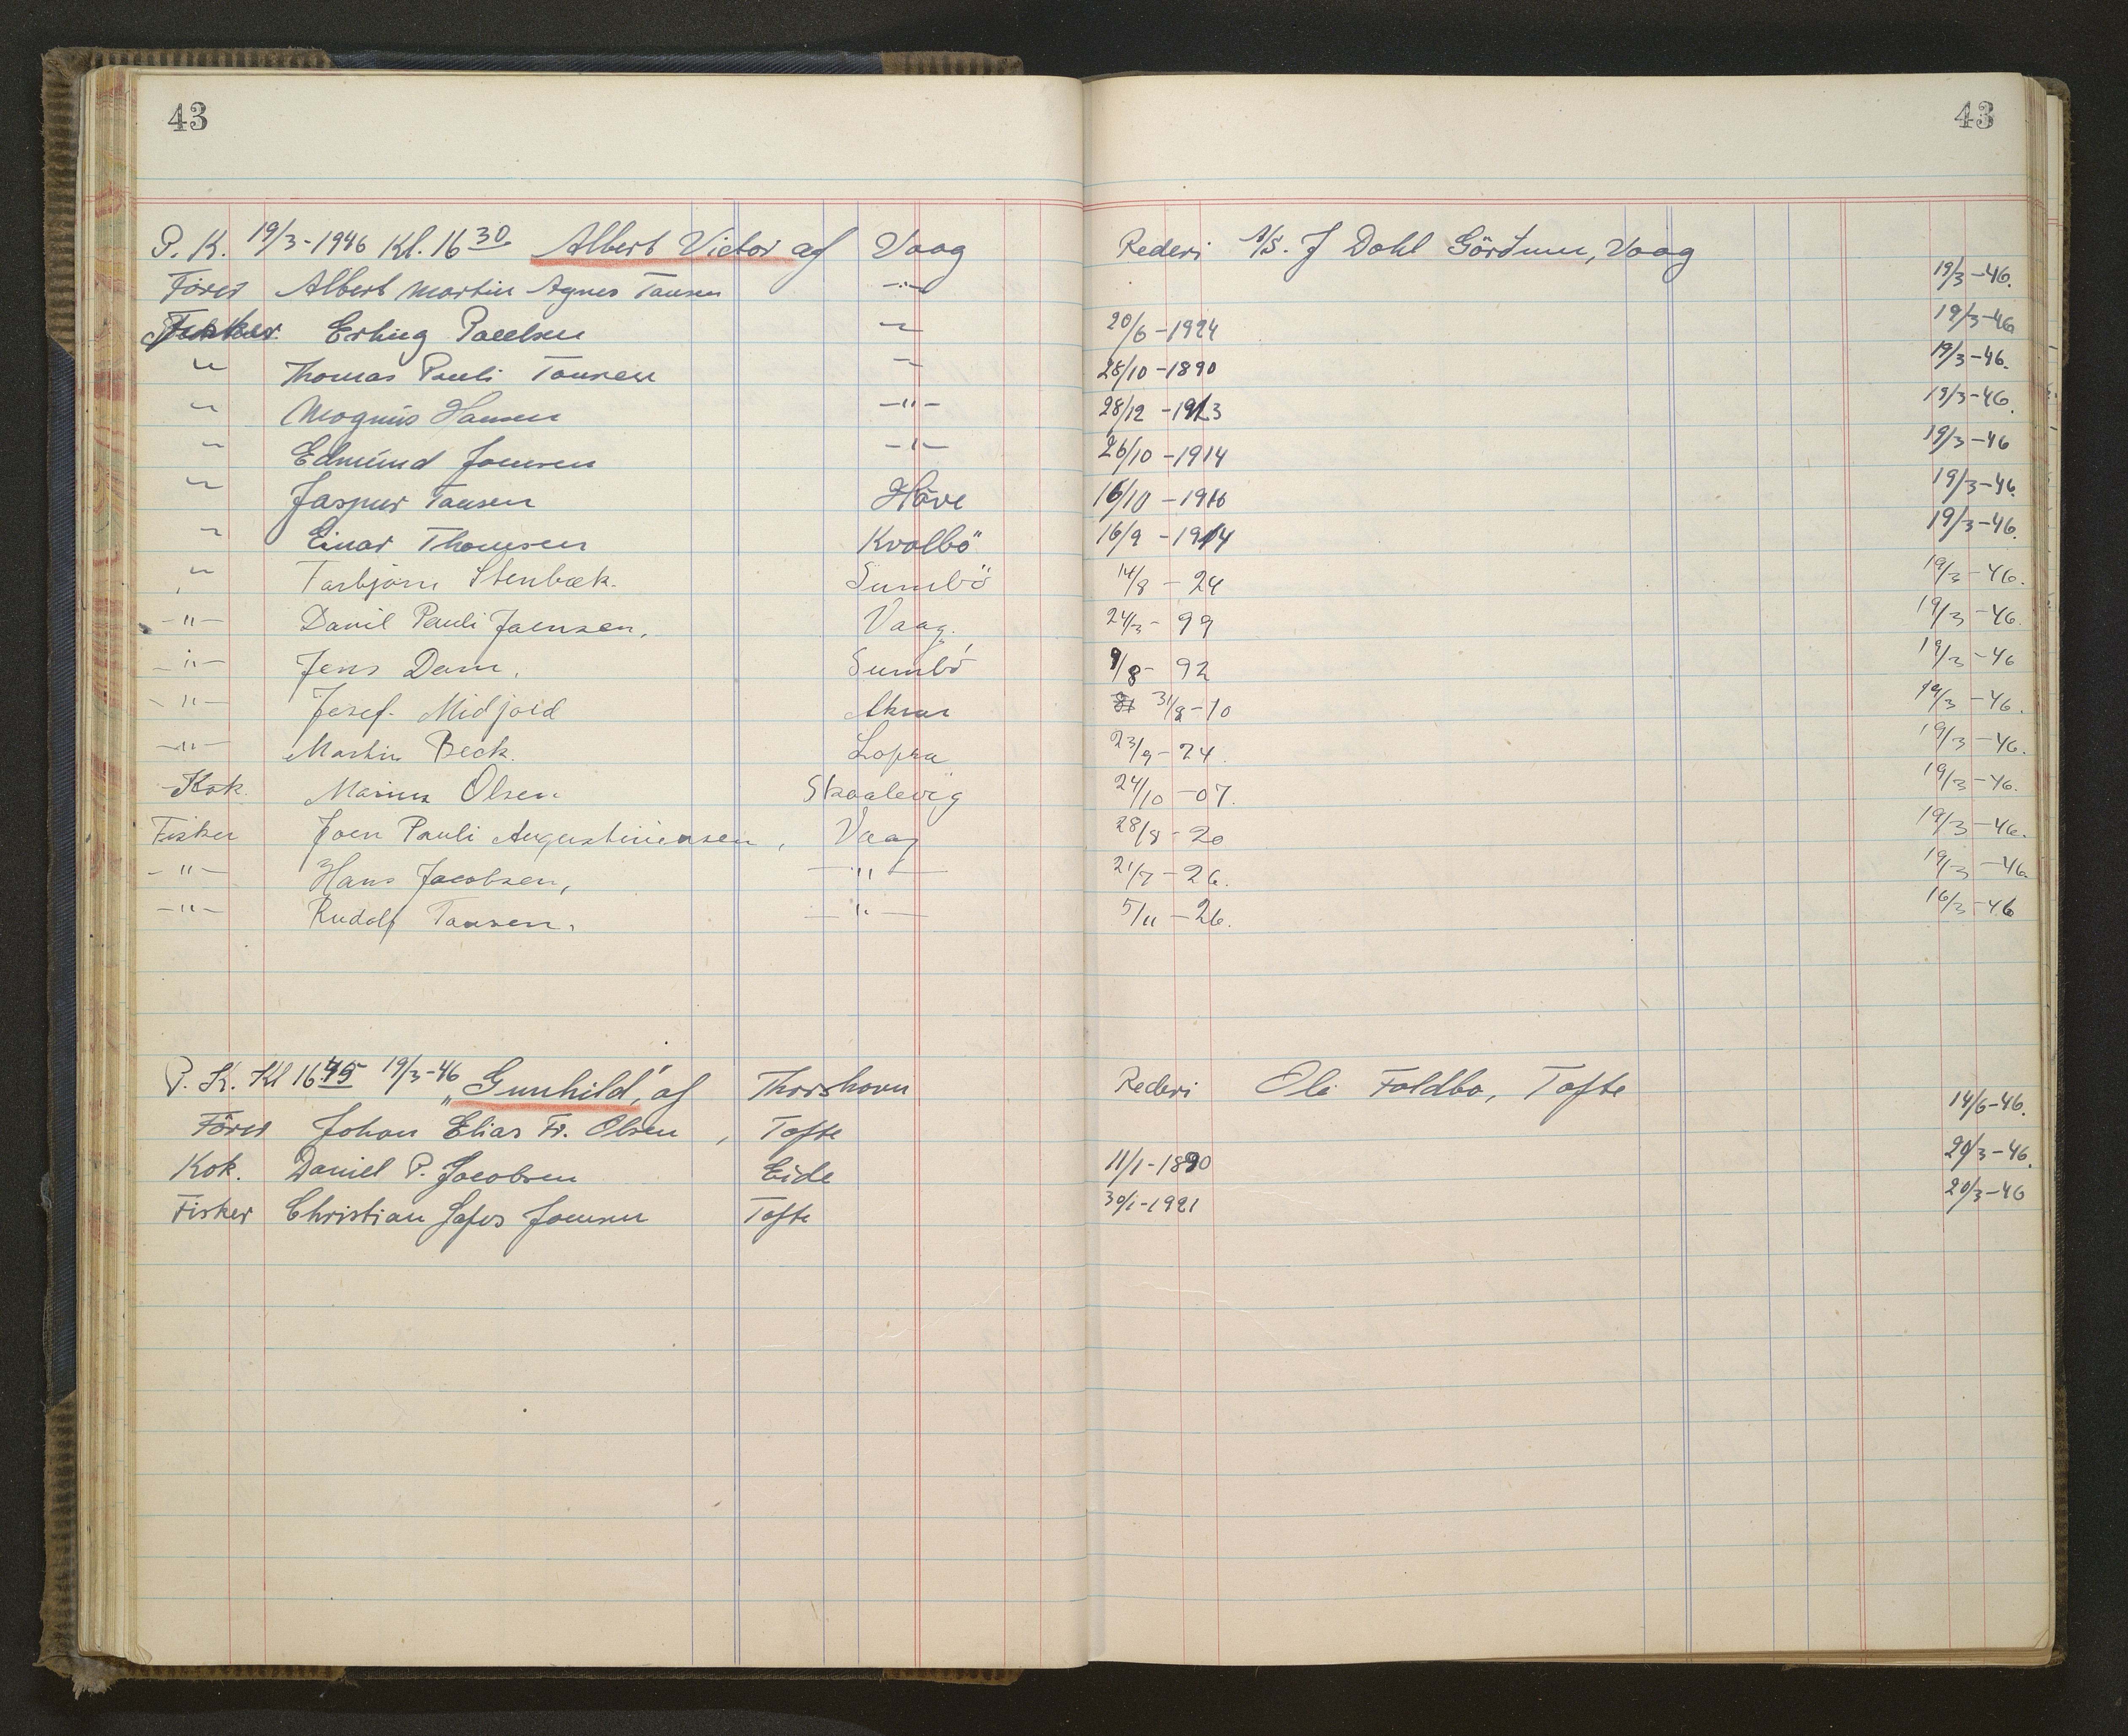 43 43
P. K. 19/3-1946 Kl. 16 30 Albert Victor af Vaag Rederi A/S. J Dahl Görðum, Vaag
Fører Albert Martin Agnes Tausen -"- 19/3-46.
Fisker. Erling Poulsen " 20/6-1924 19/3-46
" Thomas Pauli Tausen " 28/10-1890 19/3-46.
" Magnus Hansen -"- 28/12-1913 19/3-46.
" Edmund Joensen -"- 26/10-1914 19/3-46
" Jaspur Tausen Höve 16/10-1916 19/3-46.
" Einar Thomsen Kvalbö 16/9-1914 19/3-46.
" Torbjörn Stenbæk. Sumbö 14/8-24 19/3-46.
-"- Danil Pauli Joensen, Vaag. 24/3-99 19/3-46.
-"- Jens Dam, Sumbö 9/8-92 19/3-46
-"- Josef Midjord Akrar 31/8-10 19/3-46.
-"- Martin Beck. Lopra 23/9-24. 19/3-46.
Kok. Marius Olsen Skaalevig 24/10-07. 19/3-46.
Fisker Joen Pauli Augustinussen, Vaag 28/8-20 19/3-46.
-"- Hans Jacobsen, -"- 21/7-26. 19/3-46
-"- Rudolf Tausen. -"- 5/11-26. 16/3-46
P. K. Kl 16 45 19/3-46 "Gunhild," af Thorshavn Rederi Ole Foldbo, Tofte
Fører Johan Elias Fr. Olsen, Tofte 14/6-46.
Kok. Daniel P. Jacobsen Eide 11/1-1890 20/3-46.
Fisker Christian Joensen Tofte 30/1-1921 20/3-46